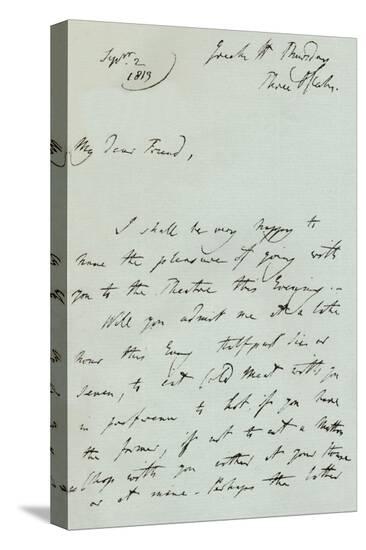 Sepr. 2
1813
Thursday
Three O'Clock.
My Dear Friend,
I shall be very happy to
have the pleasure of going with
you to the Theatre this Evening.-
Will you admit me at a late
hour this Eveng half past Six or
Seven, to eat Cold Meat with you
in preference to hot if you have
the former, if not to eat a Mutton
Chop with you either at your House
or at mine - Perhaps the latter